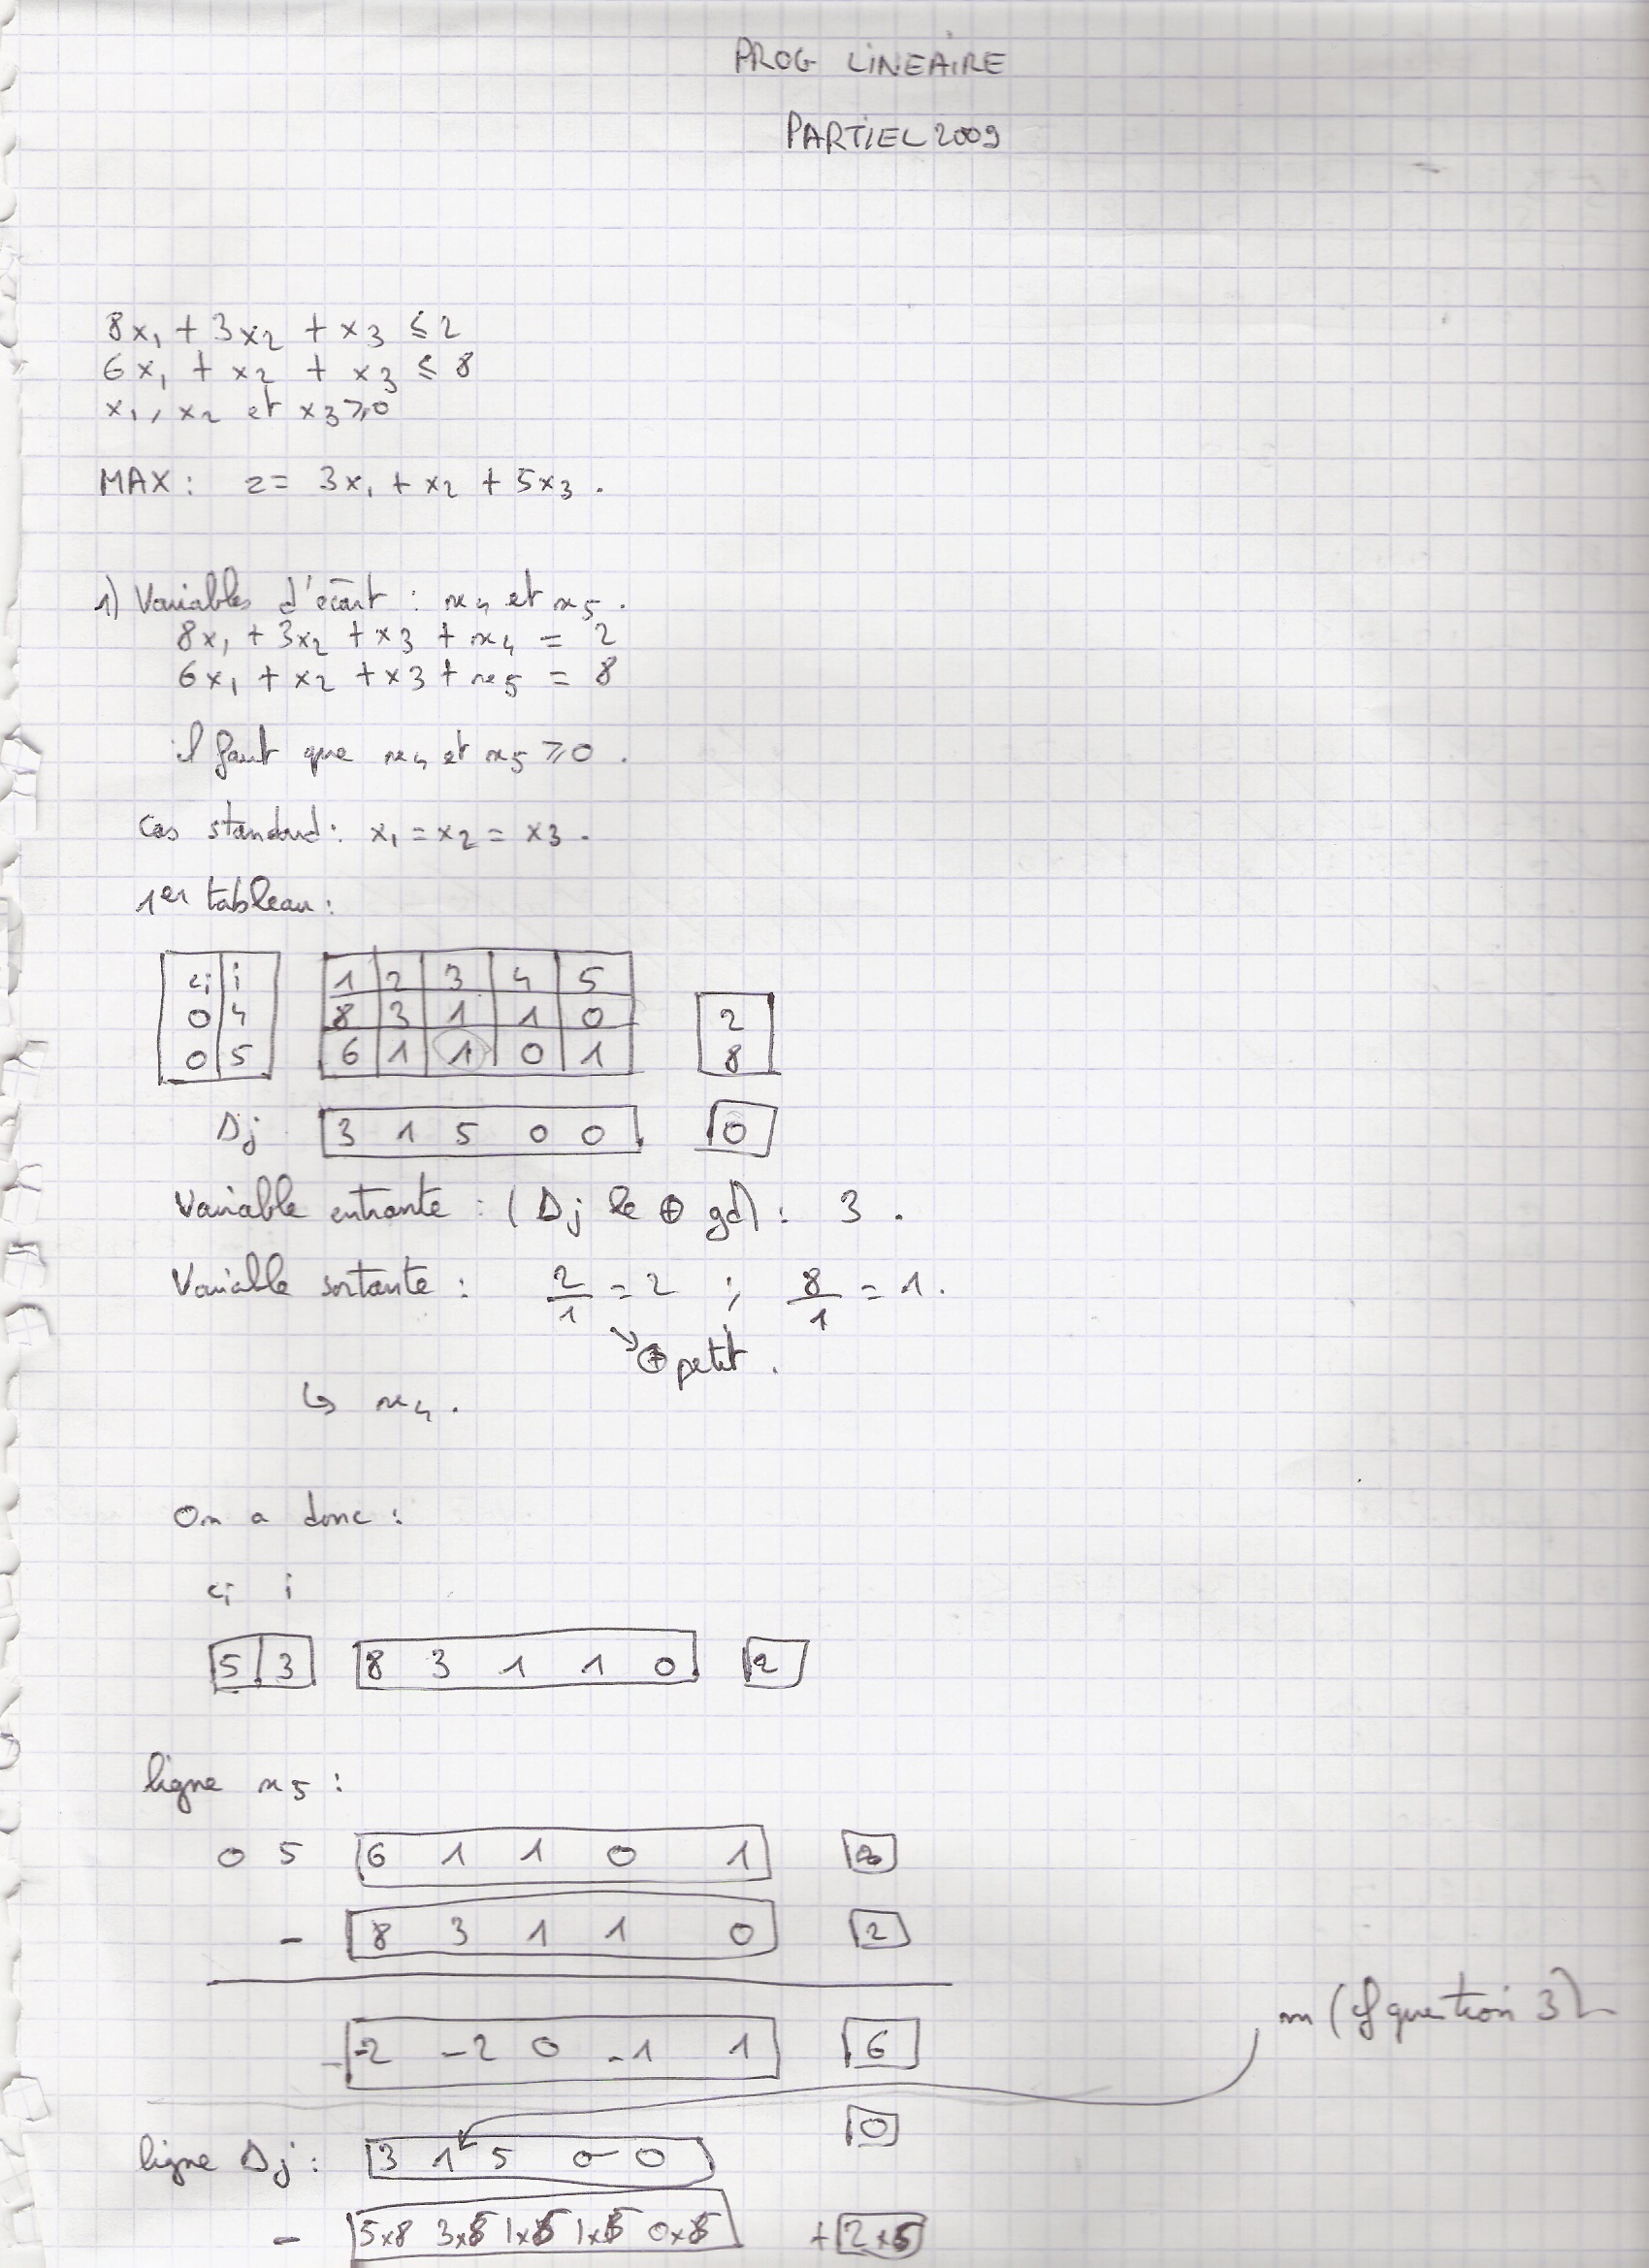 PROG LINEAIRE
PARTIEL 2009
8x₁ + 3x₂ + x₃ ≤ 2
6x₁ + x₂ + x₃ ≤ 8
x₁, x₂ et x₃ ≥ 0
MAX : z = 3x₁ + x₂ + 5x₃.
1) Variables d'écart : x₄ et x₅.
8x₁ + 3x₂ + x₃ + x₄ = 2
6x₁ + x₂ + x₃ + x₅ = 8
il faut que x₄ et x₅ ≥ 0.
Cas standard : x₁ = x₂ = x₃.
1er tableau :
ci i 1 2 3 4 5
0 4 8 3 1 1 0 2
0 5 6 1 1 0 1 8
Dj 3 1 5 0 0 0
Variable entrante : (Dj le ⊕ gd) : 3.
Variable sortante : 2/1 = 2 ; 8/1 = 1.
↘ ⊕ petit.
↳ x₄.
On a donc :
ci i
5 3 8 3 1 1 0 2
ligne x₅ :
0 5 6 1 1 0 1 8
- 8 3 1 1 0 2
-2 -2 0 -1 1 6
m (cf question 3)
0
ligne Dj : 3 1 5 0 0
- 5x8 3x5 1x5 1x5 0x5 + 2x5